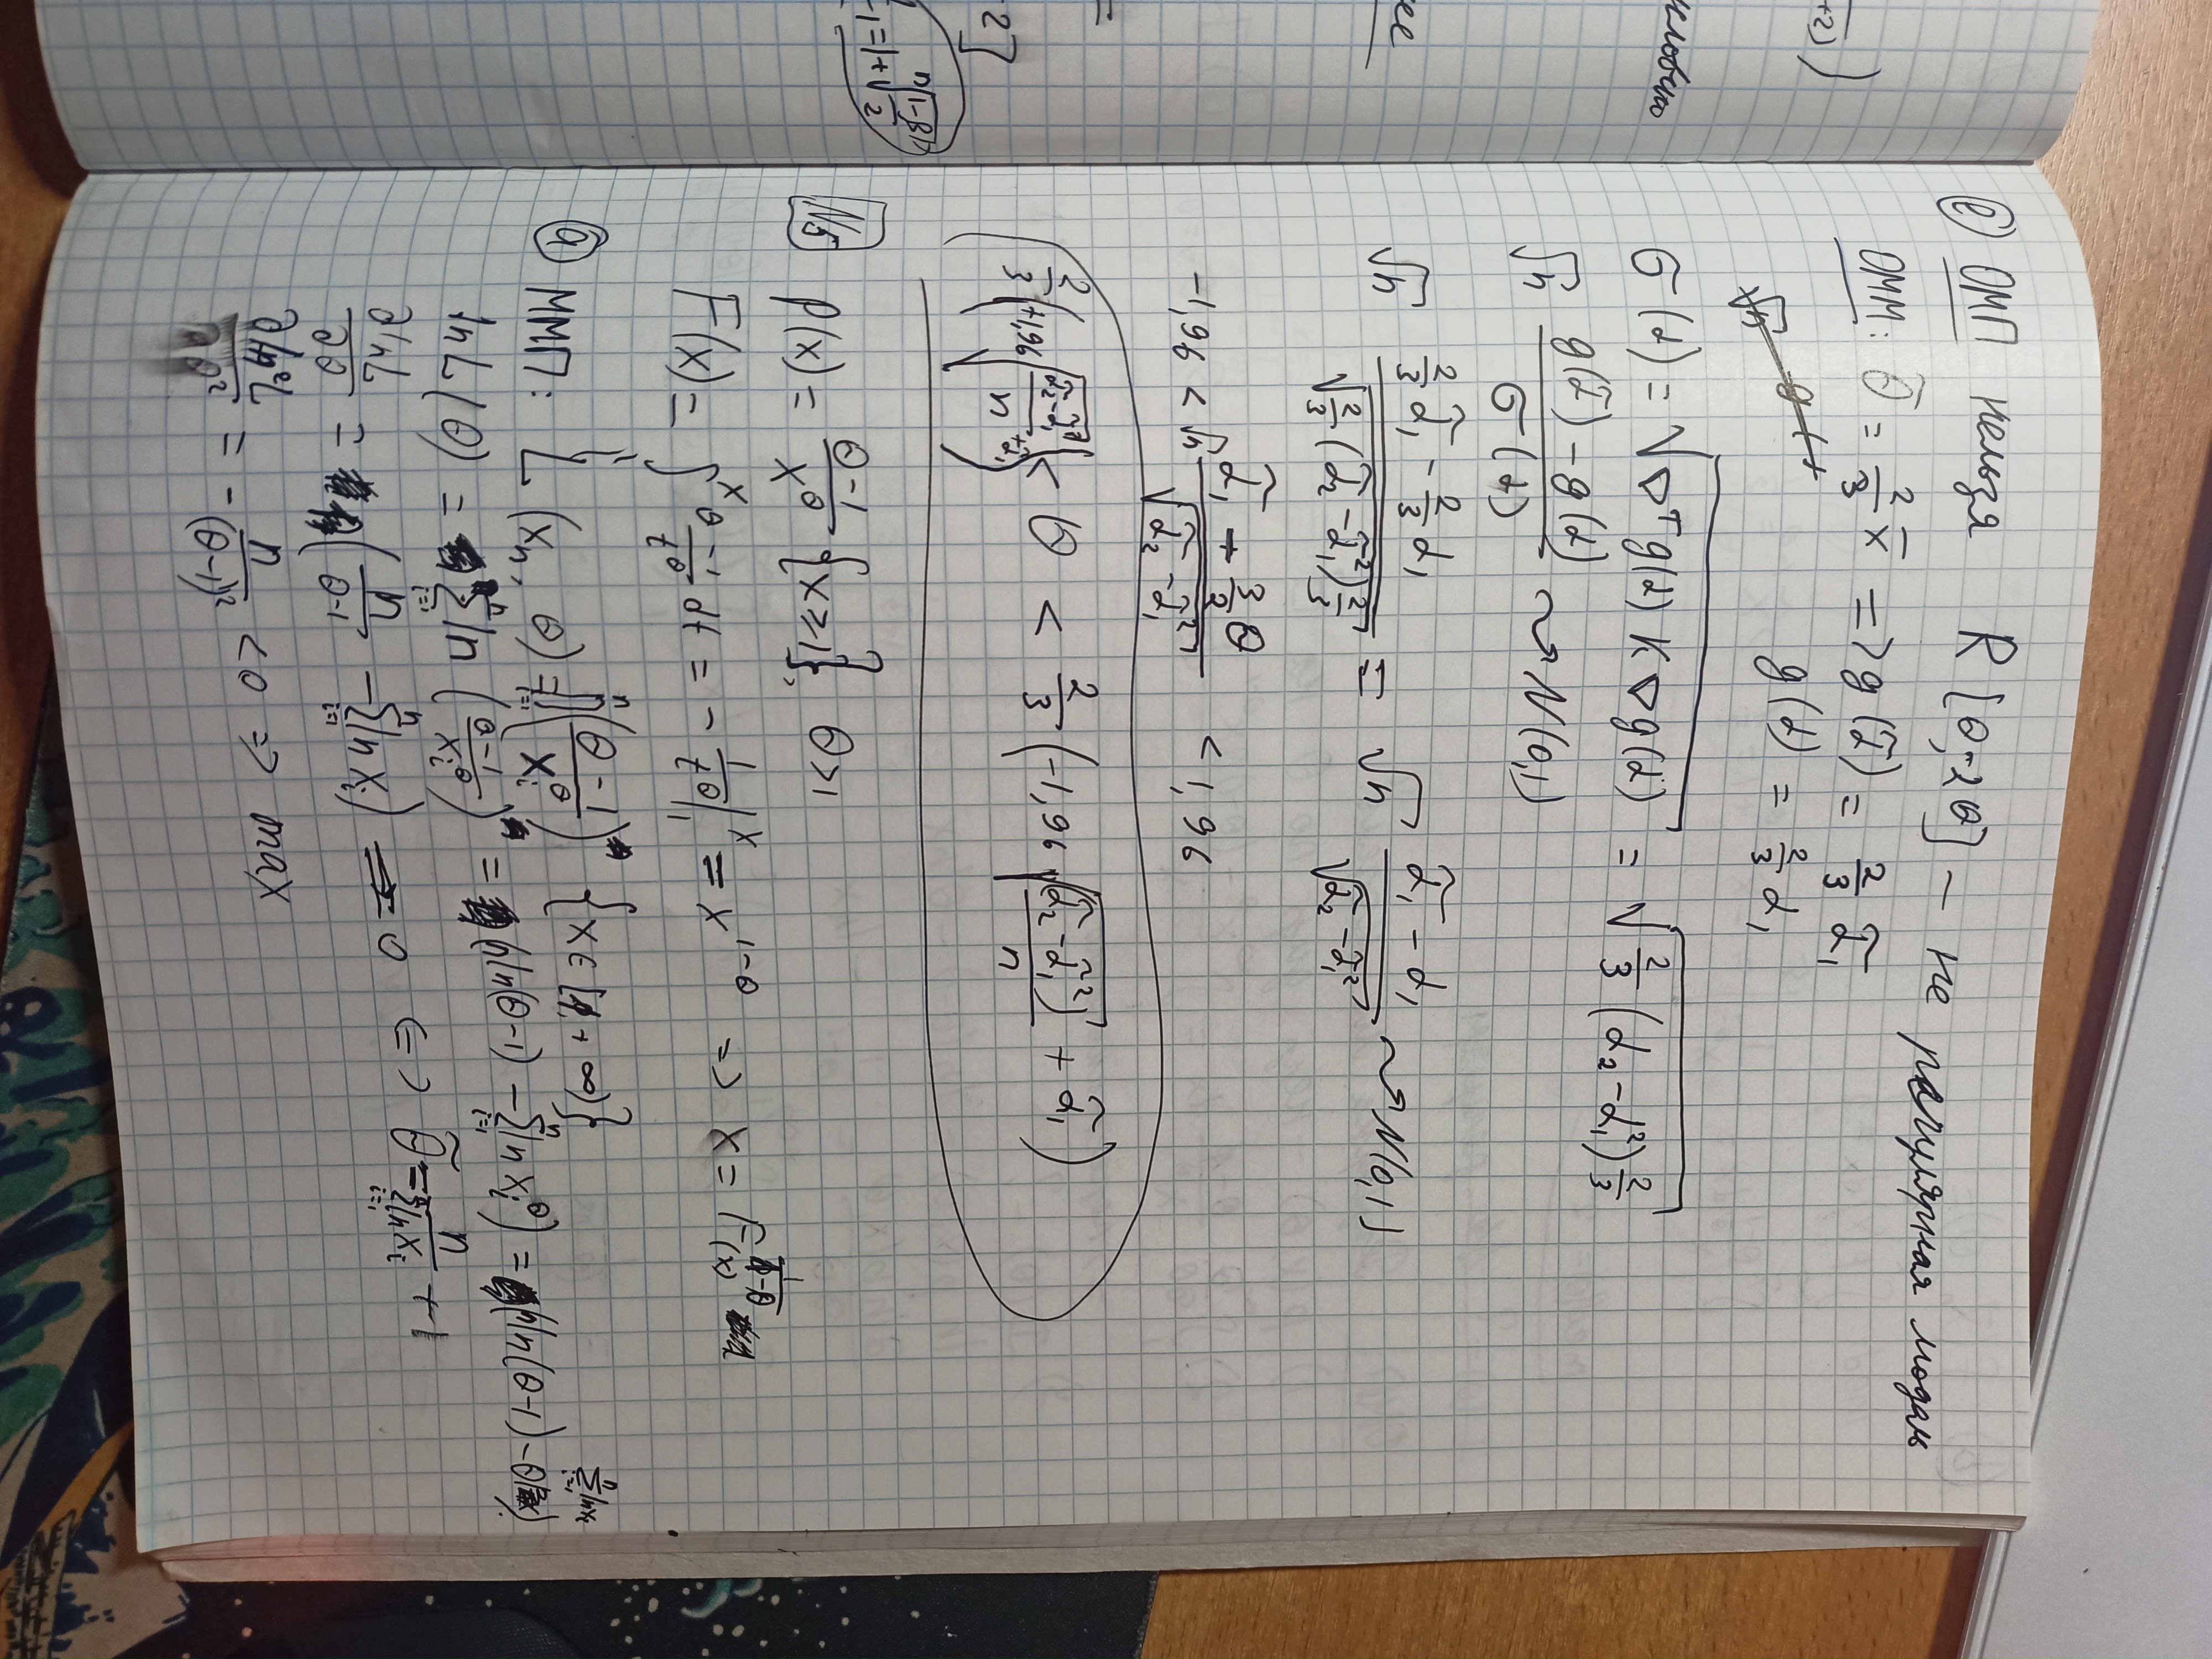 +2)
словно
ее
=
2]
₁ = 1 + ⁿ√((1-β)/2)
е) ОМП нельзя R[θ; 2θ] – не регулярная модель
ОММ: θ̃ = 2/3 x̄ => g(α̃) = 2/3 α̃₁
√n g( )
g(α) = 2/3 α₁
σ(α) = √(∇ᵀg(α) K ∇g(α)) = √(2/3 (α₂ - α₁²) 2/3)
√n (g(α̃) - g(α))/σ(α) ⇝ N(0,1)
√n (2/3 α̃₁ - 2/3 α₁)/√(2/3 (α̃₂ - α̃₁²) 2/3) = √n (α̃₁ - α₁)/√(α̃₂ - α̃₁²) ⇝ N(0,1)
-1,96 < √n (α̃₁ - 3/2 θ)/√(α̃₂ - α̃₁²) < 1,96
2/3 (+1,96 √((α̃₂ - α̃₁²)/n) + α̃₁) < θ < 2/3 (-1,96 √((α̃₂ - α̃₁²)/n) + α̃₁)
N5 p(x) = (θ-1)/x^θ {x ≥ 1}, θ > 1
F(x) = ∫₁ˣ (θ-1)/t^θ dt = - 1/t^θ |₁ˣ = x^(1-θ) => x = F(x)^(1/(1-θ))
а) ММП: L(xₙ, θ) = ∏ᵢ₌₁ⁿ ((θ-1)/xᵢ^θ) {x ∈ [1, +∞)}
ln L(θ) = Σᵢ₌₁ⁿ ln ((θ-1)/xᵢ^θ) = (n ln(θ-1) - Σᵢ₌₁ⁿ ln xᵢ^θ) = (n ln(θ-1) - θ Σᵢ₌₁ⁿ ln xᵢ)
∂lnL/∂θ = (n/(θ-1) - Σᵢ₌₁ⁿ ln xᵢ) = 0 <=> θ̃ = n/(Σᵢ₌₁ⁿ ln xᵢ) + 1
∂ln²L/∂θ² = - n/(θ-1)² < 0 => max